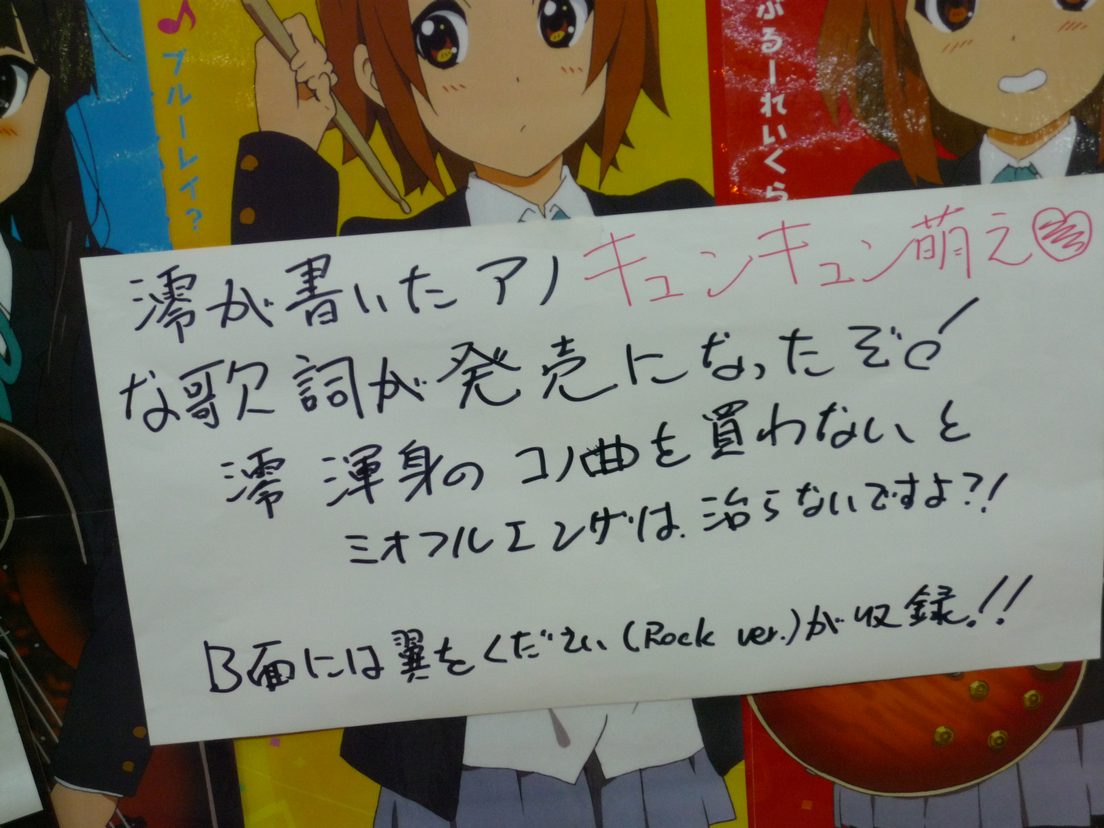 ♪ブルーレイ?
ぶるーれいくら
澪が書いたアノキュンキュン萌え♥
な歌詞が発売になったぞ
澪渾身のコノ曲を買わないと
ミオフルエンザは治らないですよ?!
B面には翼をください(Rock ver.)が収録!!